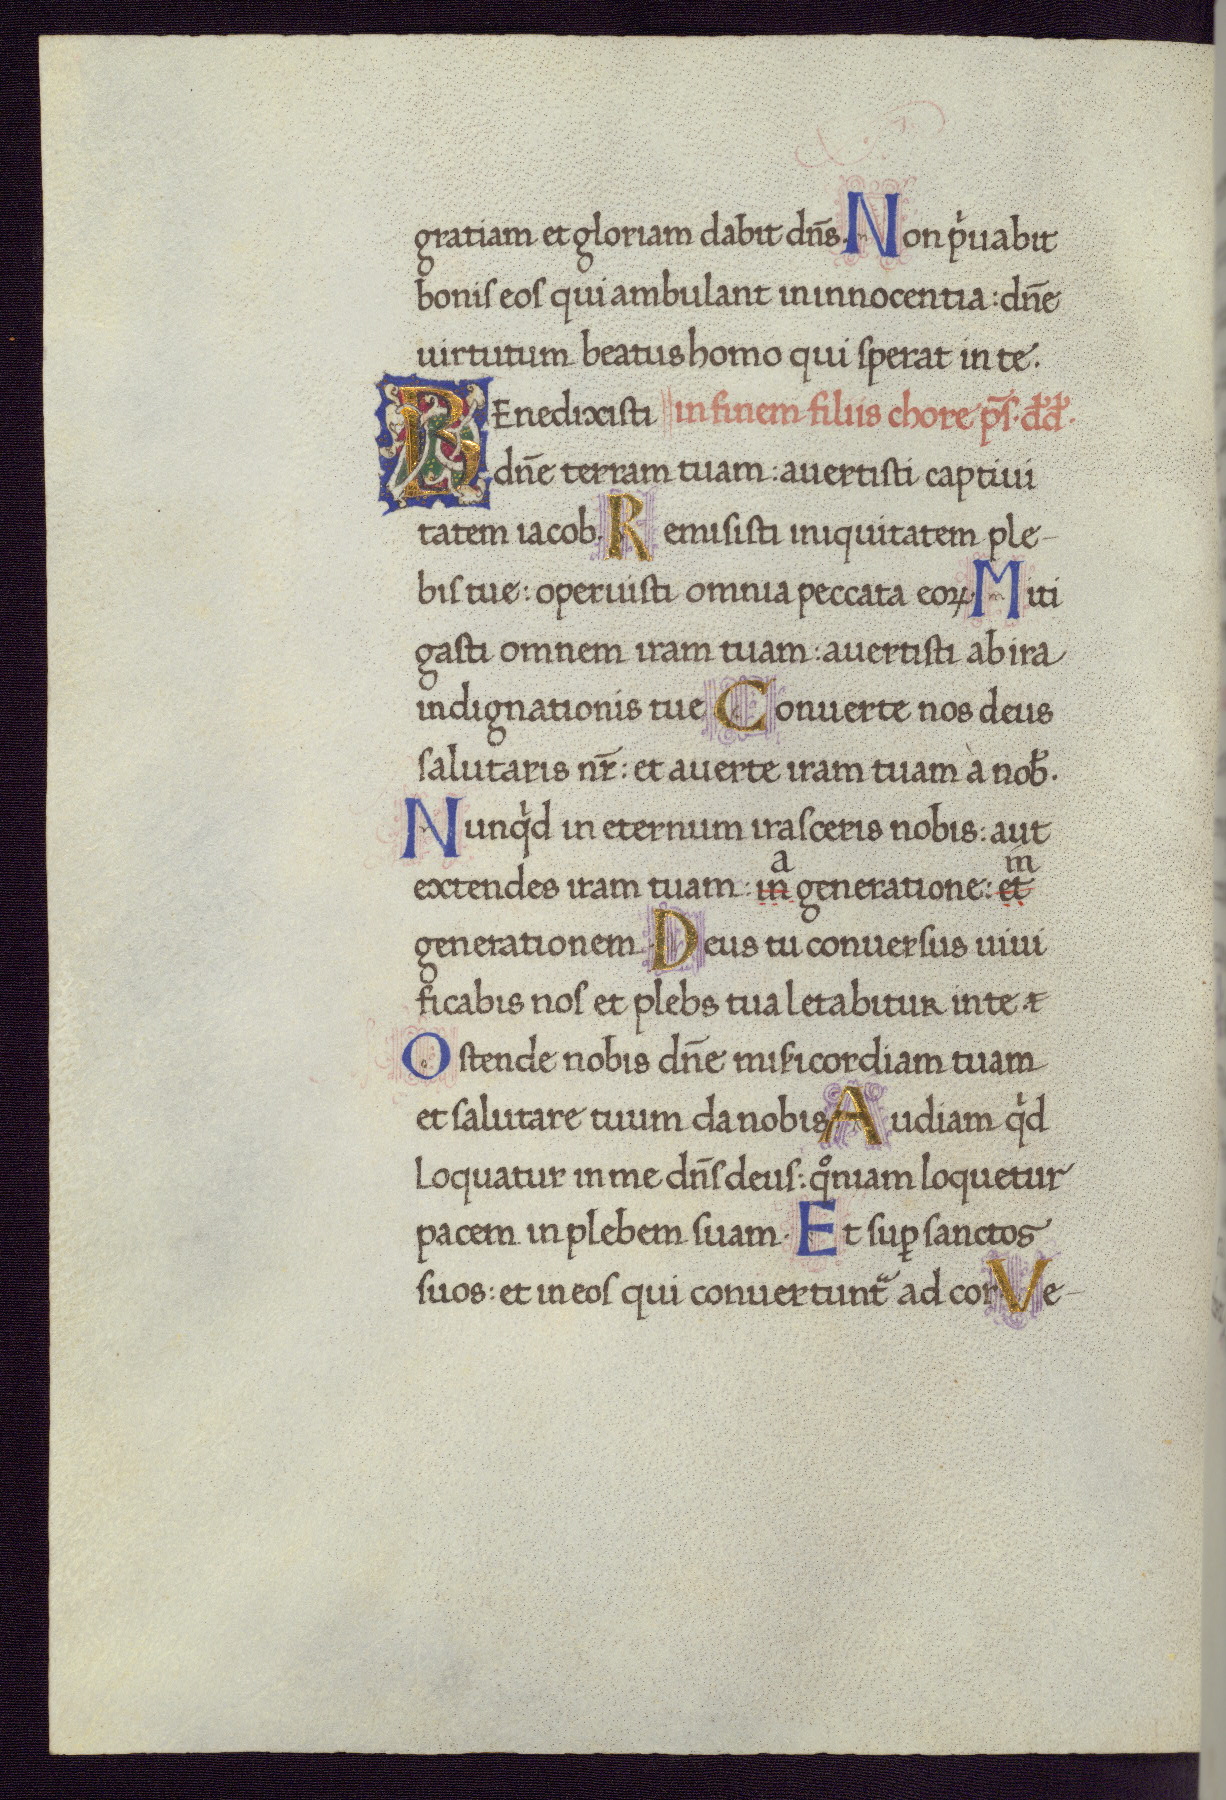 gratiam et gloriam dabit dn̄s. Non pͥuabit
bonis eos qui ambulant in innocentia: dn̄e
uirtutum beatus homo qui sperat in te.
BEnedixisti in finem filiis chore ps̄. dd̄.
dn̄e terram tuam: auertisti captiui
tatem iacob. Remisisti iniquitatem ple-
bis tue: operuisti omnia peccata eoꝝ. Miti
gasti omnem iram tuam: auertisti ab ira
indignationis tue Conuerte nos deus
salutaris nr̄: et auerte iram tuam à nob̄.
Nunqͥd in eternum irasceris nobis: aut
a in
extendes iram tuam: in generatione: et
generationem. Deus tu conuersus uiui
ficabis nos et plebs tua letabitur in te. τ
Ostende nobis dn̄e misicordiam tuam
et salutare tuum da nobis Audiam qͥd
loquatur in me dn̄s deus: qͦniam loquetur
pacem in plebem suam. Et suꝑ sanctos
suos: et in eos qui conuertunt᷑ ad cor Ve-